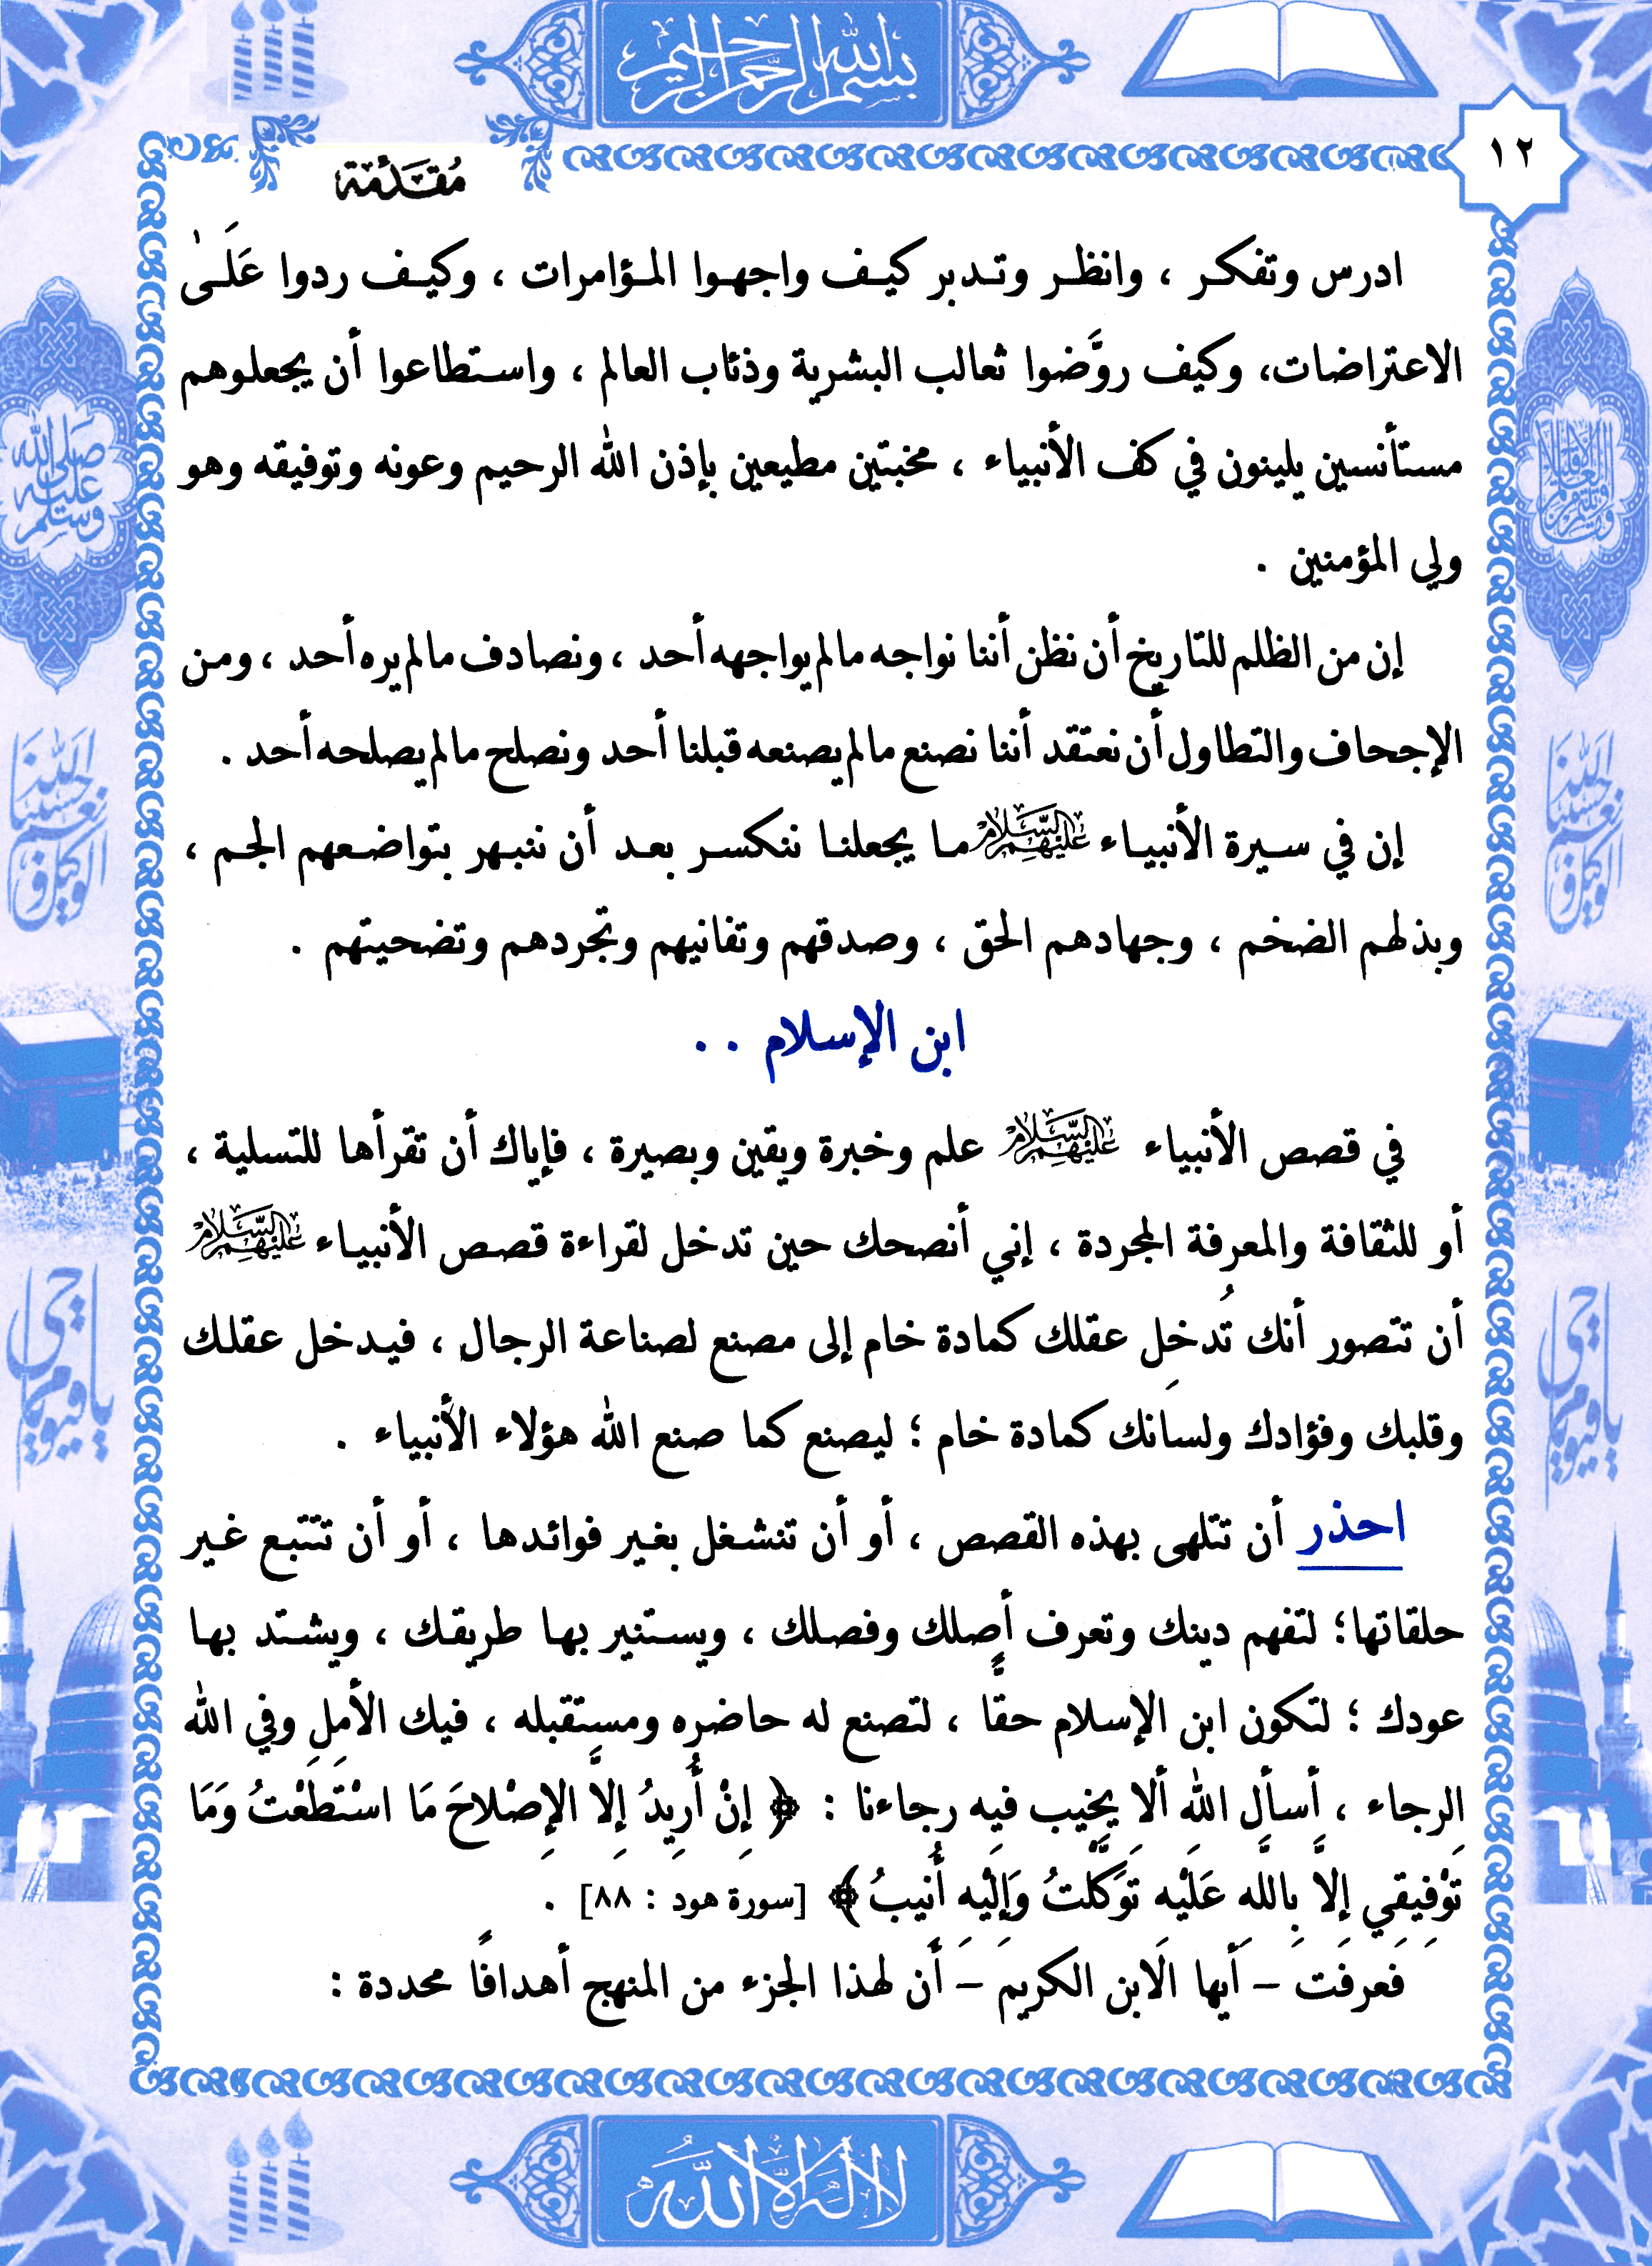 بسم الله الرحمن الرحيم
١٢
مُقَدِّمَة
ادرس وتفكر ، وانظر وتدبر كيف واجهوا المؤامرات ، وكيف ردوا عَلَىٰ
الاعتراضات، وكيف روَّضوا ثعالب البشرية وذئاب العالم ، واستطاعوا أن يجعلوهم
مستأنسين يلينون في كف الأنبياء ، مخبتين مطيعين بإذن الله الرحيم وعونه وتوفيقه وهو
ولي المؤمنين .
إن من الظلم للتاريخ أن نظن أننا نواجه ما لم يواجهه أحد ، ونصادف ما لم يره أحد ، ومن
الإجحاف والتطاول أن نعتقد أننا نصنع ما لم يصنعه قبلنا أحد ونصلح ما لم يصلحه أحد .
إن في سيرة الأنبياء عليهم السلام ما يجعلنا ننكسر بعد أن ننبهر بتواضعهم الجم ،
وبذلهم الضخم ، وجهادهم الحق ، وصدقهم وتفانيهم وتجردهم وتضحيتهم .
ابن الإسلام . .
في قصص الأنبياء عليهم السلام علم وخبرة ويقين وبصيرة ، فإياك أن تقرأها للتسلية ،
أو للثقافة والمعرفة المجردة ، إني أنصحك حين تدخل لقراءة قصص الأنبياء عليهم السلام
أن تتصور أنك تُدخِل عقلك كمادة خام إلى مصنع لصناعة الرجال ، فيدخل عقلك
وقلبك وفؤادك ولسانك كمادة خام ؛ ليصنع كما صنع الله هؤلاء الأنبياء .
احذر أن تتلهى بهذه القصص ، أو أن تنشغل بغير فوائدها ، أو أن تتتبع غير
حلقاتها؛ لتفهم دينك وتعرف أصلك وفصلك ، ويستنير بها طريقك ، ويشتد بها
عودك ؛ لتكون ابن الإسلام حقًّا ، لتصنع له حاضره ومستقبله ، فيك الأمل وفي الله
الرجاء ، أسأل الله ألا يخيب فيه رجاءنا : ﴿ إِنْ أُرِيدُ إِلاَّ الإِصْلاحَ مَا اسْتَطَعْتُ وَمَا
تَوْفِيقِي إِلاَّ بِاللَّهِ عَلَيْهِ تَوَكَّلْتُ وَإِلَيْهِ أُنِيبُ ﴾ [سورة هود : ٨٨] .
فعرفت – أيها الابن الكريم – أن لهذا الجزء من المنهج أهدافًا محددة :
صلى الله عليه وسلم
حسبنا الله ونعم الوكيل
حسبنا الله ونعم الوكيل
يا حي يا قيوم
يا حي يا قيوم
لا إله إلا الله